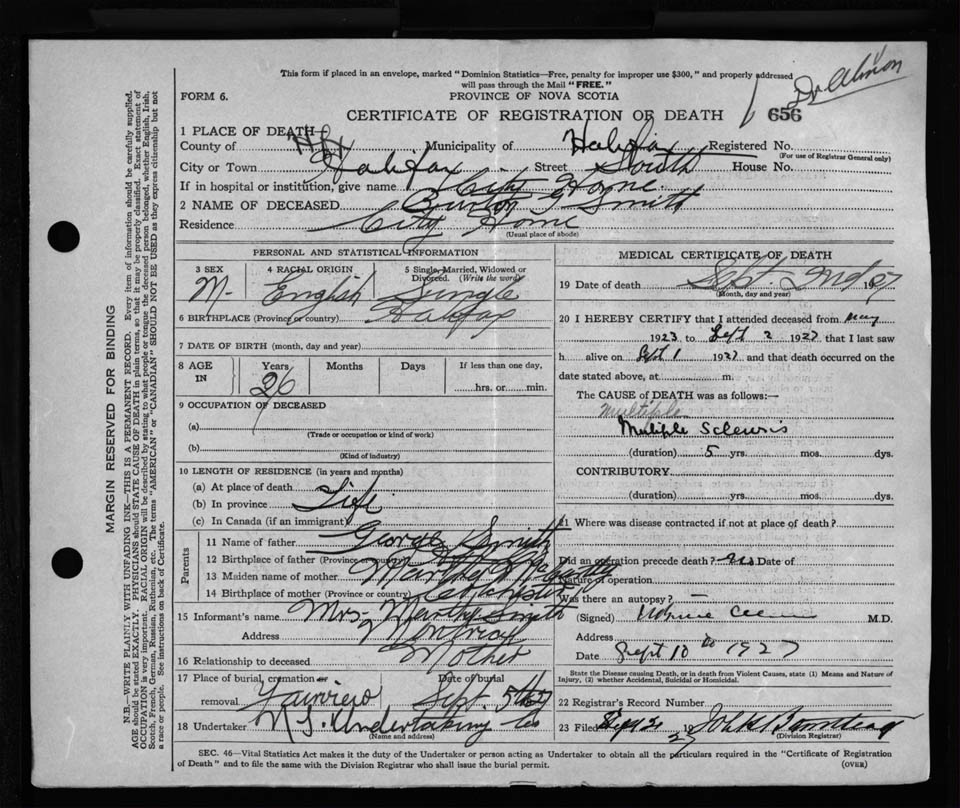 This form if placed in an envelope, marked "Dominion Statistics—Free, penalty for improper use $300," and properly addressed
will pass through the Mail "FREE."
Dr. Almon
FORM 6.
PROVINCE OF NOVA SCOTIA
CERTIFICATE OF REGISTRATION OF DEATH
656
1 PLACE OF DEATH
County of Hfx Municipality of Halifax Registered No.
(For use of Registrar General only)
City or Town Halifax Street South House No.
If in hospital or institution, give name City Home.
2 NAME OF DECEASED Burton Smith
Residence City Home
(Usual place of abode)
PERSONAL AND STATISTICAL INFORMATION
3 SEX 4 RACIAL ORIGIN 5 Single, Married, Widowed or Divorced. (Write the word)
M- English Single
6 BIRTHPLACE (Province or country) Halifax
7 DATE OF BIRTH (month, day and year)
8 AGE IN Years Months Days If less than one day,
26 hrs. or min.
9 OCCUPATION OF DECEASED
(a)
(Trade or occupation or kind of work)
(b)
(Kind of industry)
10 LENGTH OF RESIDENCE (in years and months)
(a) At place of death
(b) In province Life
(c) In Canada (if an immigrant)
Parents
11 Name of father George Smith
12 Birthplace of father (Province or country)
13 Maiden name of mother Martha
14 Birthplace of mother (Province or country)
15 Informant's name Mrs Martha Smith
Address
16 Relationship to deceased Mother
17 Place of burial, cremation or Date of burial
removal Fairview Sept. 5th 27
18 Undertaker N S. Undertaking Co
(Name and address)
MEDICAL CERTIFICATE OF DEATH
19 Date of death Sept. 2nd 1927
(Month, day and year)
20 I HEREBY CERTIFY that I attended deceased from May
1923 to Sept 2 1927 that I last saw
h alive on Sept 1 1927 and that death occurred on the
date stated above, at m.
The CAUSE of DEATH was as follows:—
Multiple
Multiple Sclerosis
(duration) 5 yrs. mos. dys.
CONTRIBUTORY.
(duration) yrs. mos. dys.
21 Where was disease contracted if not at place of death?
Did an operation precede death? no Date of
Nature of operation
Was there an autopsy? —
(Signed) M.D.
Address
Date Sept 10th 1927
State the Disease causing Death, or in death from Violent Causes, state (1) Means and Nature of
Injury, (2) whether Accidental, Suicidal or Homicidal.
22 Registrar's Record Number
23 Filed 27 John
(Division Registrar)
SEC. 46—Vital Statistics Act makes it the duty of the Undertaker or person acting as Undertaker to obtain all the particulars required in the "Certificate of Registration
of Death" and to file the same with the Division Registrar who shall issue the burial permit.
(OVER)
MARGIN RESERVED FOR BINDING
N.B.—WRITE PLAINLY WITH UNFADING INK—THIS IS A PERMANENT RECORD. Every item of information should be carefully supplied.
AGE should be stated EXACTLY. PHYSICIANS should STATE CAUSE OF DEATH in plain terms, so that it may be properly classified. Exact statement of
OCCUPATION is very important. RACIAL ORIGIN will be described by stating to what people or tongue the deceased person belonged, whether English, Irish,
Scotch, French, German, Russian, Ruthenian, etc. The terms "AMERICAN" or "CANADIAN" SHOULD NOT BE USED as they express citizenship but not
a race or people. See instructions on back of Certificate.